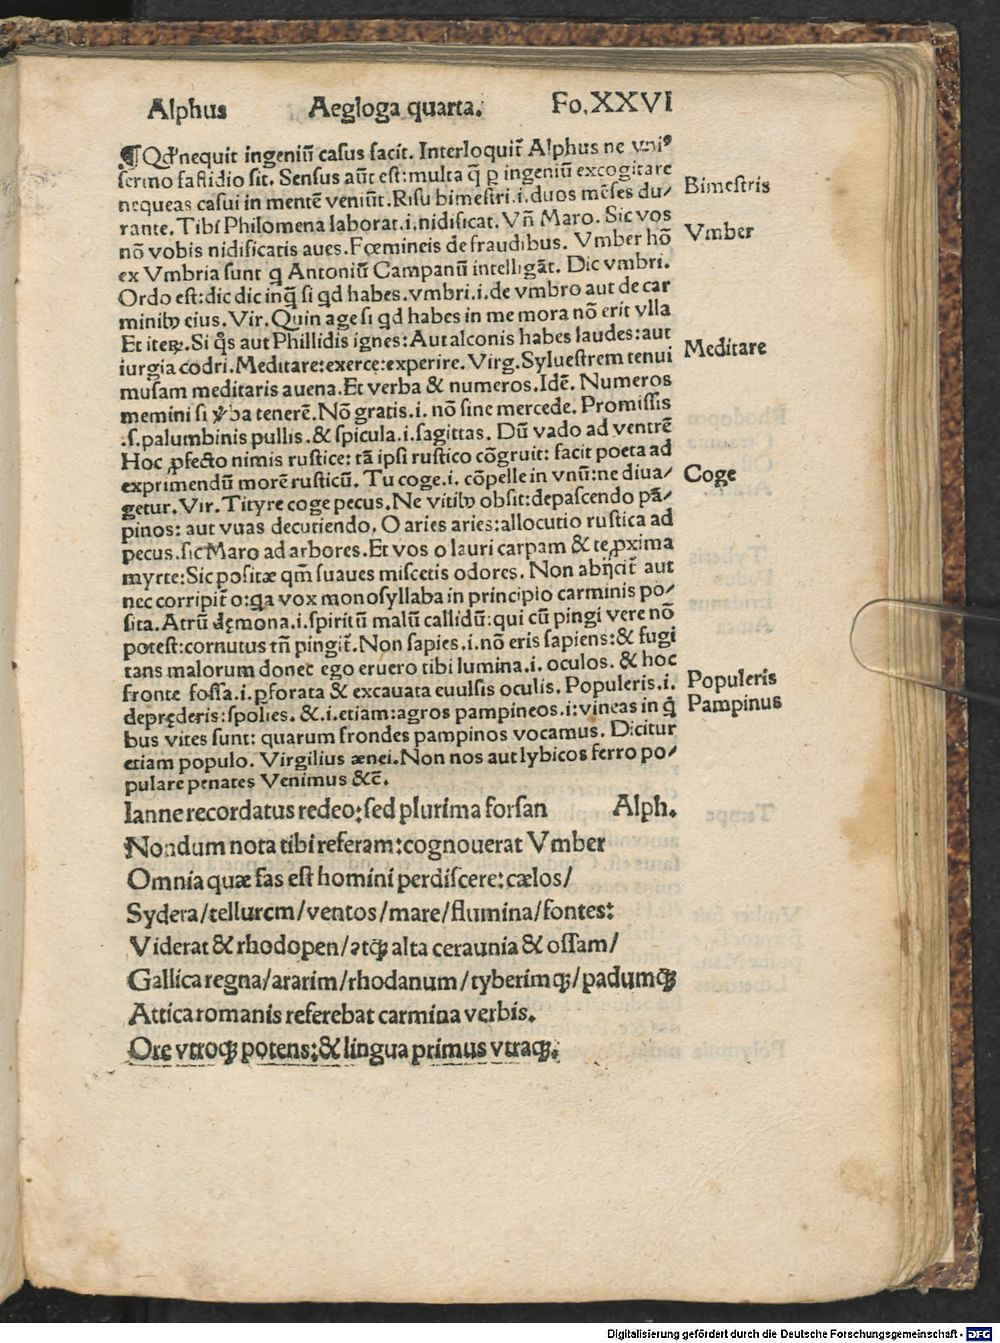 Alphus Aegloga quarta. Fo. XXVI
¶ Qd' nequit ingeniū casus facit. Interloquit̃ Alphus ne vniꝰ
sermo fastidio sit. Sensus aũt est: multa q̄ ꝑ ingeniũ excogitare
nequeas casui in mentē veniũt. Risu bimestri .i. duos mēses du/
rante. Tibi Philomena laborat .i. nidificat. Vñ Maro. Sic vos
nō vobis nidificatis aues. Fœmineis de fraudibus. Vmber hō
ex Vmbria sunt q Antoniū Campanū intelligāt. Dic vmbri.
Ordo est: dic dic inq̄ si qd habes. vmbri .i. de vmbro aut de car
minibꝰ eius. Vir. Quin age si qd habes in me mora nō erit vlla
Et iteꝝ. Si q̄s aut Phillidis ignes: Aut alconis habes laudes: aut
iurgia codri. Meditare: exerce: experire. Virg. Syluestrem tenui
musam meditaris auena. Et verba & numeros. Idē. Numeros
memini si v̄ba tenerē. Nō gratis .i. nō sine mercede. Promissis
.s. palumbinis pullis. & spicula .i. sagittas. Dū vado ad ventrē
Hoc ꝓfecto nimis rustice: tā ipsi rustico cōgruit: facit poeta ad
exprimendū morē rusticū. Tu coge .i. cōpelle in vnū: ne diua/
getur. Vir. Tityre coge pecus. Ne vitibꝰ obsit: depascendo pā/
pinos: aut vuas decutiendo. O aries aries: allocutio rustica ad
pecus. sic Maro ad arbores. Et vos o lauri carpam & te ꝓxima
myrte: Sic positæ qm̃ suaues miscetis odores. Non abijcit̃ aut
nec corripit̃ o: qa vox monosyllaba in principio carminis po/
sita. Atrū dęmona .i. spiritū malū callidū: qui cū pingi vere nō
potest: cornutus tñ pingit̃. Non sapies .i. nō eris sapiens: & fugi
tans malorum donec ego eruero tibi lumina .i. oculos. & hoc
fronte fossa .i. ꝑforata & excauata euulsis oculis. Populeris .i.
depręderis: spolies. & .i. etiam: agros pampineos .i: vineas in q̄
bus vites sunt: quarum frondes pampinos vocamus. Dicitur
etiam populo. Virgilius ænei. Non nos aut lybicos ferro po/
pulare penates Venimus &c̄.
Ianne recordatus redeo: sed plurima forsan Alph.
Nondum nota tibi referam: cognouerat Vmber
Omnia quæ fas est homini perdiscere: cælos/
Sydera/tellurem/ventos/mare/flumina/fontes:
Viderat & rhodopen/atqꝫ alta ceraunia & ossam/
Gallica regna/ararim/rhodanum/tyberimqꝫ/padumqꝫ
Attica romanis referebat carmina verbis.
Ore vtroqꝫ potens: & lingua primus vtraqꝫ.
Bimestris
Vmber
Meditare
Coge
Populeris
Pampinus
Digitalisierung gefördert durch die Deutsche Forschungsgemeinschaft - DFG